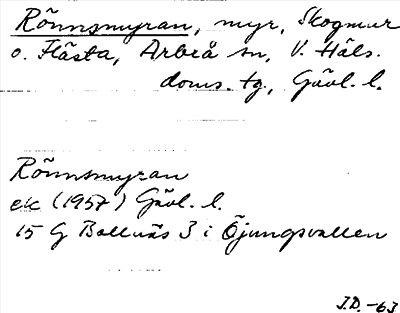 Rönnsmyran, myr, Skogmur
o. Flästa, Arbrå sn, V. Häls.
doms. tg, Gävl. l.
Rönnsmyran
ek (1957) Gävl. l.
15 G Bollnäs 3 i Öjungsvallen
J.D. -63